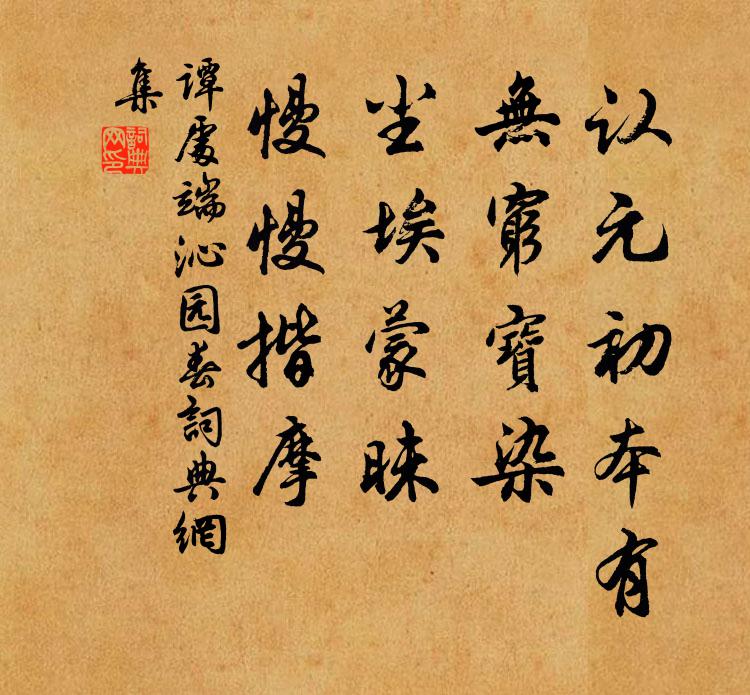 认元初本有
無窮寶染
尘埃蒙昧
慢慢揩摩
谭處端沁园春詞典網
集
詞典
网印